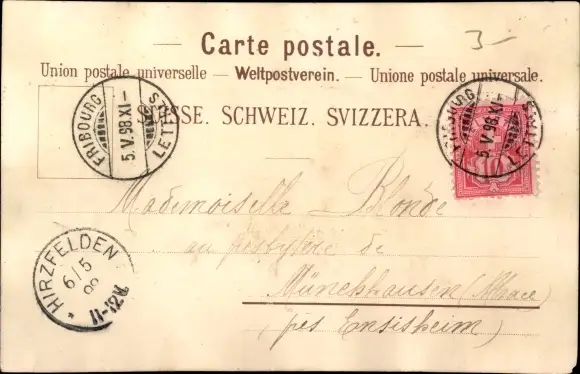 3-
— Carte postale. —
Union postale universelle — Weltpostverein. — Unione postale universale.
SUISSE. SCHWEIZ. SVIZZERA.
FRIBOURG
5.V.98.XI-
LETTRES
FRIBOURG
5.V.98.XI-
10
Mademoiselle Blonde
au presbytère de
Münckhausen (Alsace)
(près Ensisheim)
HIRZFELDEN
6/5
98
11-12V.